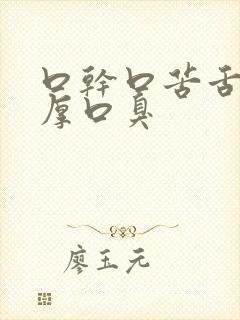 口幹口苦舌
厚口臭
廖玉元